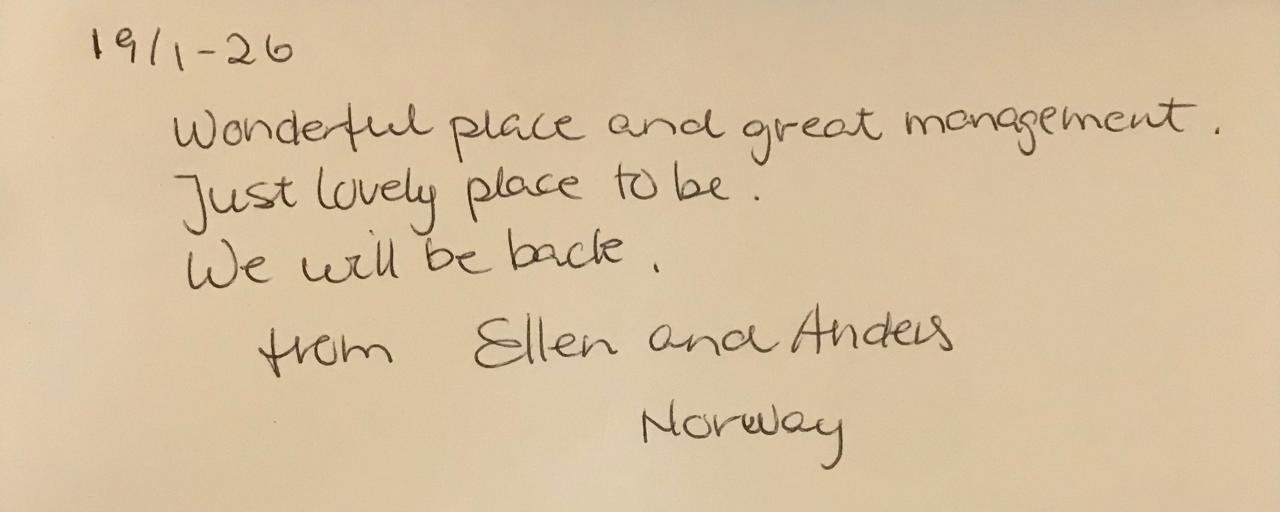 19/1-26
Wonderful place and great management.
Just lovely place to be.
We will be back.
from Ellen and Anders
Norway